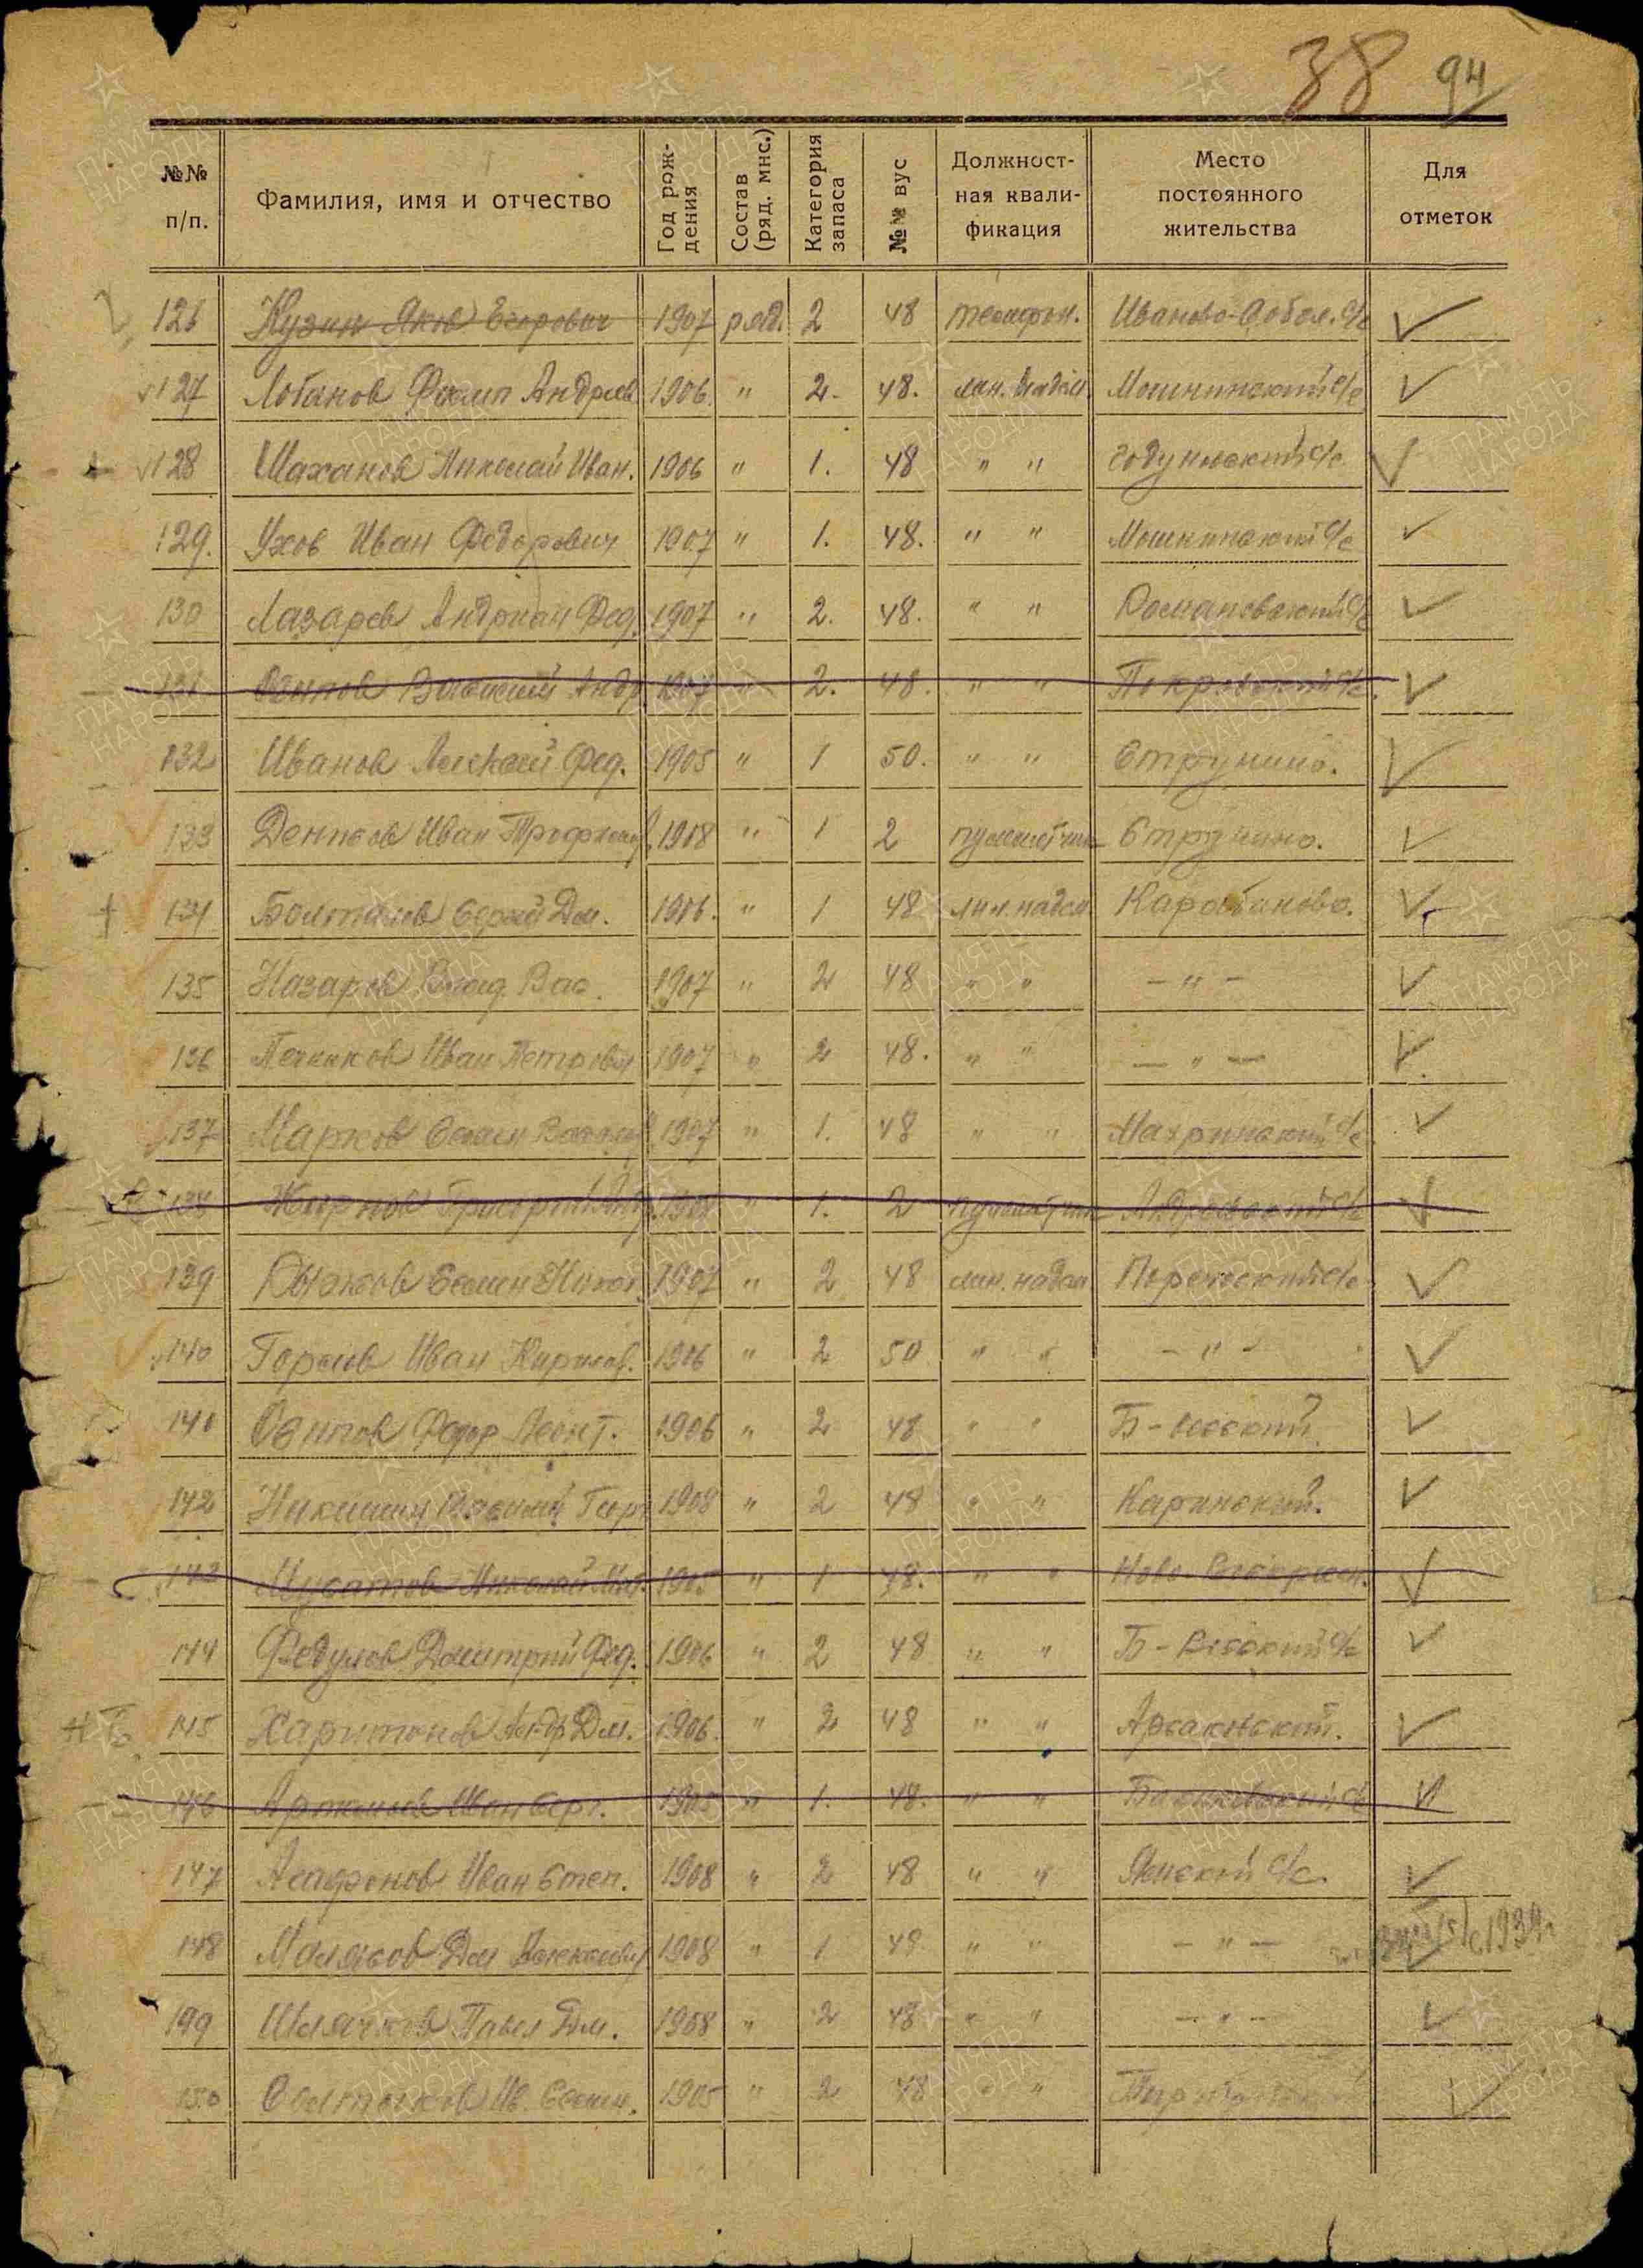 38 94
№№ п/п. Фамилия, имя и отчество Год рождения Состав (ряд. мнс.) Категория запаса №№ вус Должностная квалификация Место постоянного жительства Для отметок
126 Кузин Яков Егорович 1907 ряд. 2 48 телефон. Иваново-Собол. с/с
127 Лобанов Филип Андреев 1906. " 2. 48. лин. надсм. Мошнинский с/с
128 Шаханов Николай Иван. 1906 " 1. 48 " " Годуновский с/с
129. Ухов Иван Федорович 1907 " 1. 48. " " Мошнинский с/с
130 Лазарев Андриан Фед. 1907 " 2. 48. " "
131 Осипов Василий Андр. 1907 " 2. 48. " " Покровский с/с.
132 Иванов Алексей Фед. 1905 " 1 50. " " Струнино.
133 Иван 1908 " 1 2 пулеметчик Струнино.
134 Сергей Дм. 1906. " 1 48 лин. надсм. Карабаново.
135 Назаров Влад. Вас. 1907 " 2 48 " " - " -
136 Иван Петрович 1907 " 2 48. " " - " -
137 Марков Семен 1907 " 1. 48 " " Махринский с/с
138 Жирнов Григорий Андр. 1908 " 1. 2 пулеметчик Андреевский с/с
139 Семен Никол. 1907 " 2 48 лин. надсм Пореческий с/с
140 Горлов Иван Кирилов. 1906 " 2 50 " " - " -
141 Осипов Федор Леонт. 1906 " 2 48 " " Б-
142 Никишин Василий Георг 1908 " 2 48 " " Каринский.
143 Мусатов Николай Мих. 1905 " 1 48. " " Ново-Воскресен.
144 Федулов Дмитрий Фед. 1906 " 2 48 " " Б- с/с
145 Харитонов Андр Дм. 1906. " 2 48 " " Арсакский.
146 Артемьев Иван Серг. 1905 " 1. 48. " " с/с
147 Агафонов Иван Степ. 1908 " 2 48 " " Ямской с/с.
148 Дм Алексеевич 1908 " 1 49 " " - " - 1939г
149 Шлячков Павел Дм. 1908 " 2 48 " " - " -
150 Ив. Семен. 1905 " 2 48 " "
ПАМЯТЬ НАРОДА